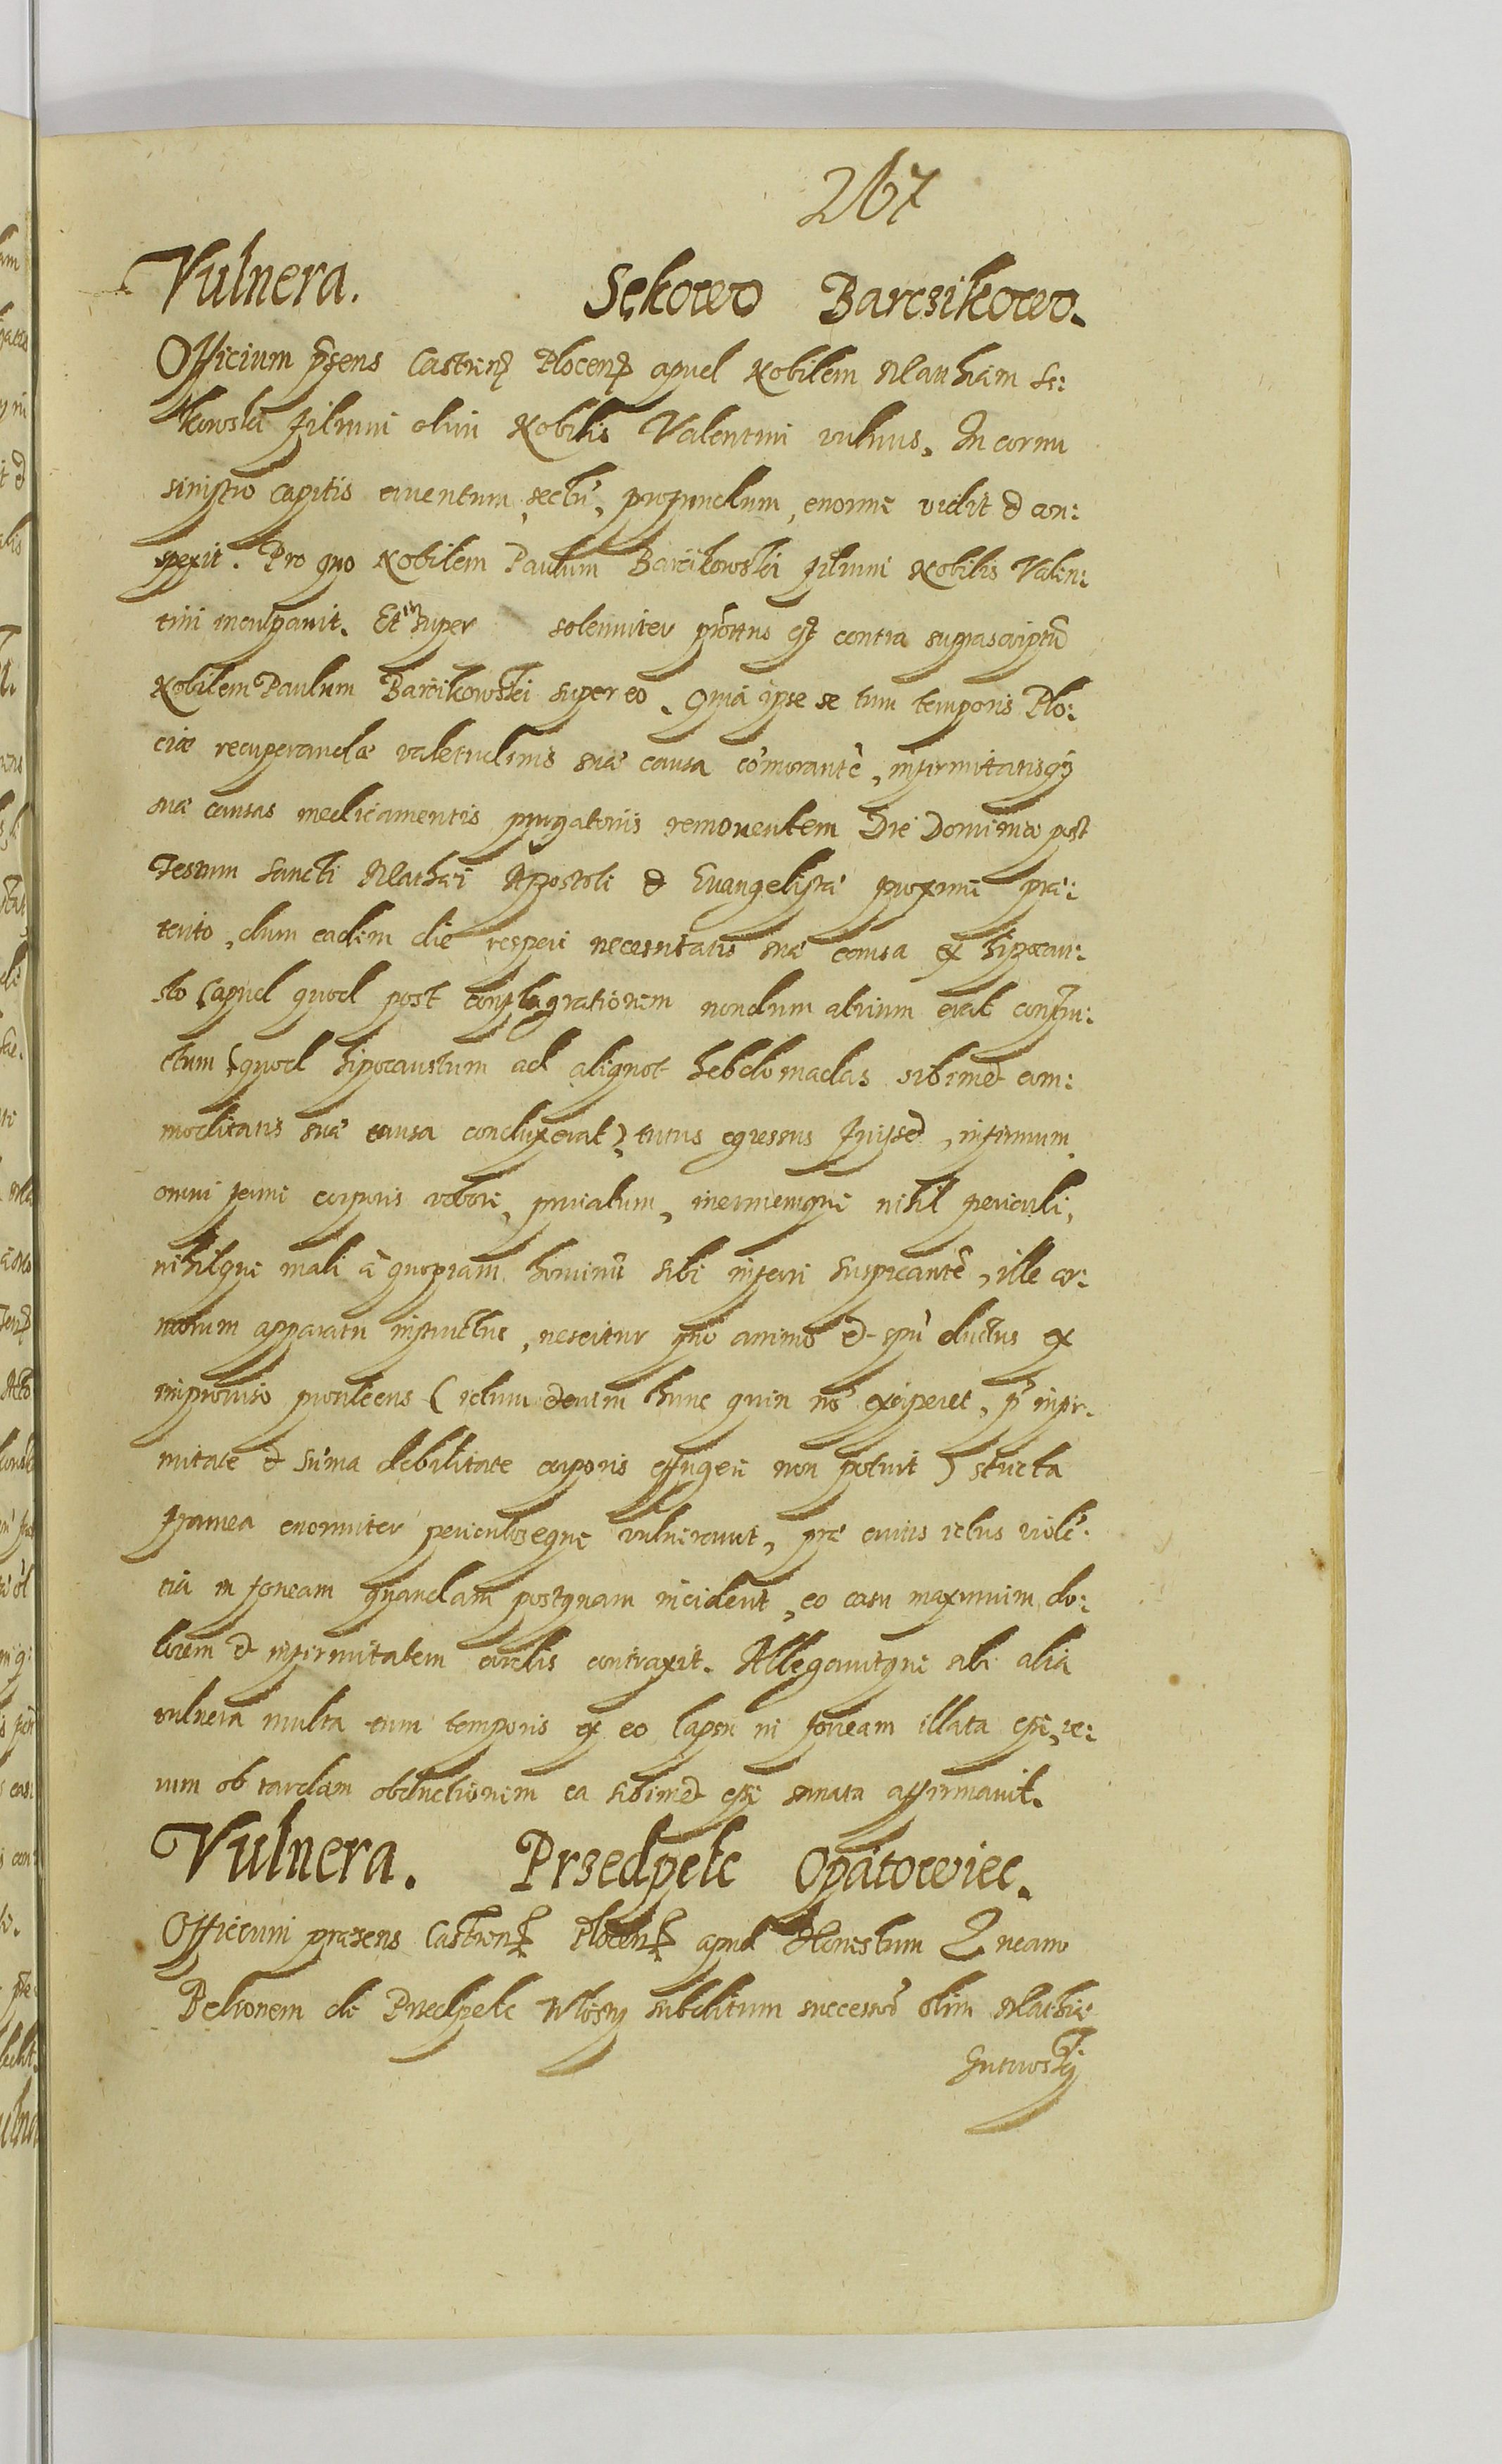 267
Vulnera. Sękowo Barcsikowo.
Officium p̄sens Castren̄ Plocen̄ apud Nobilem Mathiam Se:
kowski filium olim Nobilis Valentini vulnus, In cornu
sinistro capitis cruentum, sectū, profundum, enorme vidit & con:
spexit. Pro quo Nobilem Paulum Barcikowski filium Nobilis Valen:
tini inculpavit. Et insuper solenniter p̄ottus est contra suprascriptū
Nobilem Paulum Barcikowski super eo. Quia ipse se tum temporis Plo:
ciæ recuperandæ valetudinis suæ causa cōmorantē, infirmitatisq3
suæ causas medicamentis purgatoriis removentem Die Dominico post
Festum Sancti Mathæi Apostoli & Evangelistæ proxime præ:
terito, dum eadem die vesperi necessitatis suæ causa ex hipocau:
sto (apud quod post conflagrationem nondum atrium erat constru:
ctum (quod hipocaustum ad aliquot hebdomadas sibimet com:
moditatis suæ causa conduxerat) tutus egressus fuisset, infirmum
omni ferme corporis robore, privatum, inermemque nihil periculi,
nihilque mali à quopiam hominū sibi inferri suspicantē, ille ar:
morum apparatu instructus, nescitur quo animo & spū ductus ex
improviso prosiliens (ictum etenim hunc quin nō exciperet, p̄ infir:
mitate & sūma debilitate corporis effugere non potuit) stricta
framea enormiter periculoseque vulneravit, præ cuius ictus violē:
tia in foveam quandam postquam incident, eo casu maximum do:
lorem & infirmitatem cordis contraxit. Allegavitque sibi alia
vulnera multa tum temporis ex eo lapsu in foveam illata esse, ve:
rum ob tardam obductionem ea sibimet esse sanata affirmavit.
Vulnera. Przedpełe Opatowiec.
Officium præsens Castren̄ Plocen̄ apud Honestum Lucam
Pełionem de Przedpełe subditum successorū olim Mathiæ